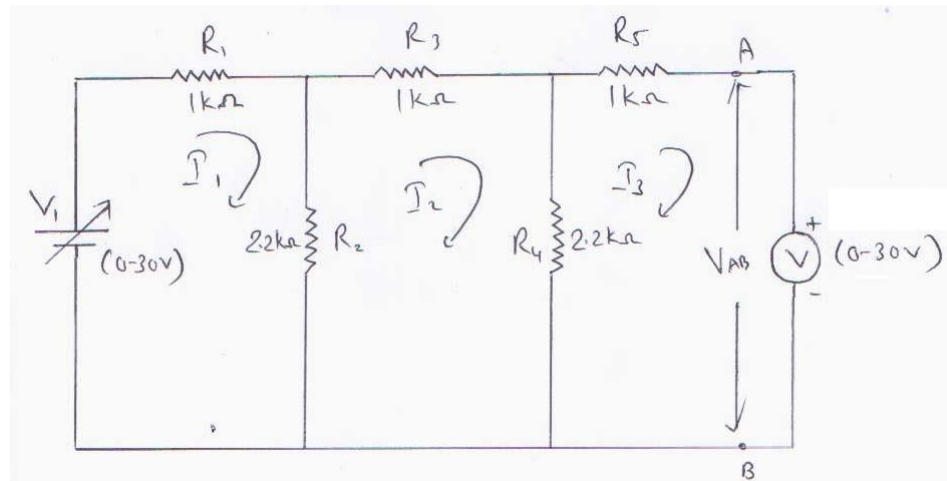 R1
R3
R5
A
1kΩ
1kΩ
1kΩ
I1
I2
I3
V1
(0-30V)
2.2kΩ
R2
R4
2.2kΩ
VAB
+
V
-
(0-30V)
B